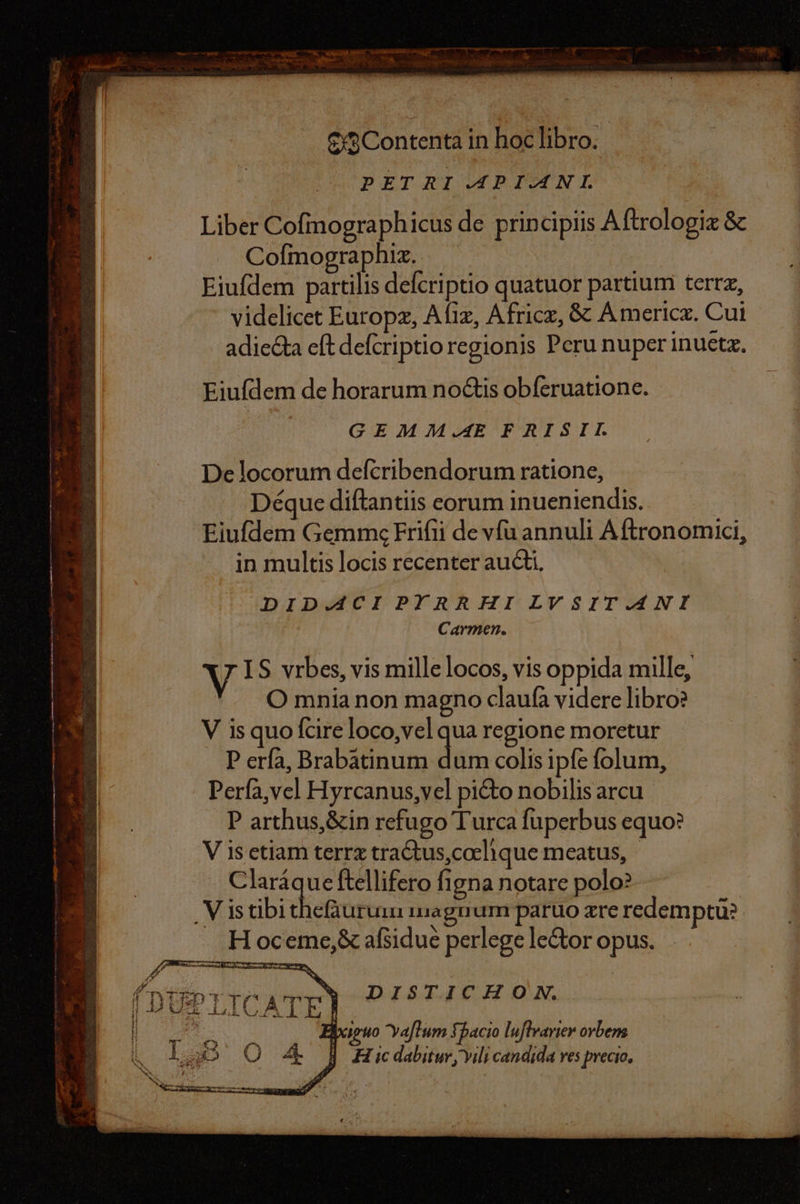 Contenta in hoc libro.
PETRI APIANI.
Liber Coſmographicus de principiis Aſtrologiæ &
Coſmographiæ.
Eiuſdem partilis deſcriptio quatuor partium terræ,
videlicet Europæ, Aſiæ, Africæ, & Americæ. Cui
adiecta eſt deſcriptio regionis Peru nuper inuētæ.
Eiuſdem de horarum noctis obſeruatione.
GEMMÆ FRISII.
De locorum deſcribendorum ratione,
Déque diſtantiis eorum inueniendis.
Eiuſdem Gemmę Friſii de vſu annuli Aſtronomici,
in multis locis recenter aucti.
DIDACI PYRRHI LVSITANI
Carmen.
VIS vrbes, vis mille locos, vis oppida mille,
Omnia non magno clauſa videre libro?
Vis quo ſcire loco, vel qua regione moretur
Perſa, Brabātinum dum colis ipſe ſolum,
Perſa, vel Hyrcanus, vel picto nobilis arcu
Parthus, & in refugo Turca ſuperbus equo?
Vis etiam terræ tractus, cœlique meatus,
Claráque ſtellifero ſigna notare polo?
Vis tibi theſaurum magnum paruo ære redemptū?
Hoc eme, & aſsiduè perlege lector opus.
DISTICHON.
Exiguo vaſtum ſpacio luſtrarier orbem
Hic dabitur, vili candida res precio.
DUPLICATE
1804